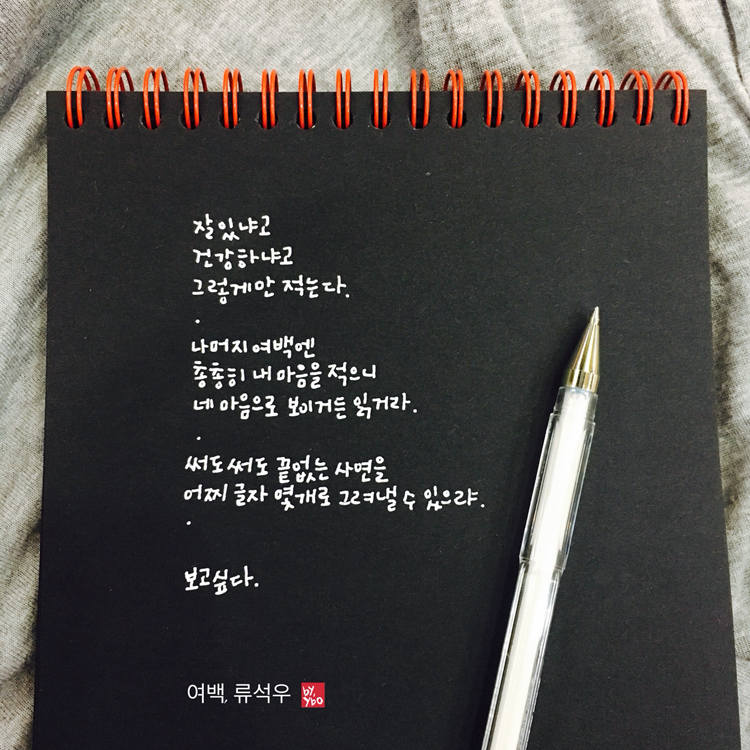 잘있냐고
건강하냐고
그렇게만 적는다.
.
나머지 여백엔
총총히 내 마음을 적으니
네 마음으로 보이거든 읽거라.
.
써도 써도 끝없는 사연을
어찌 글자 몇개로 그려낼 수 있으랴.
.
보고싶다.
여백, 류석우
by. ybo